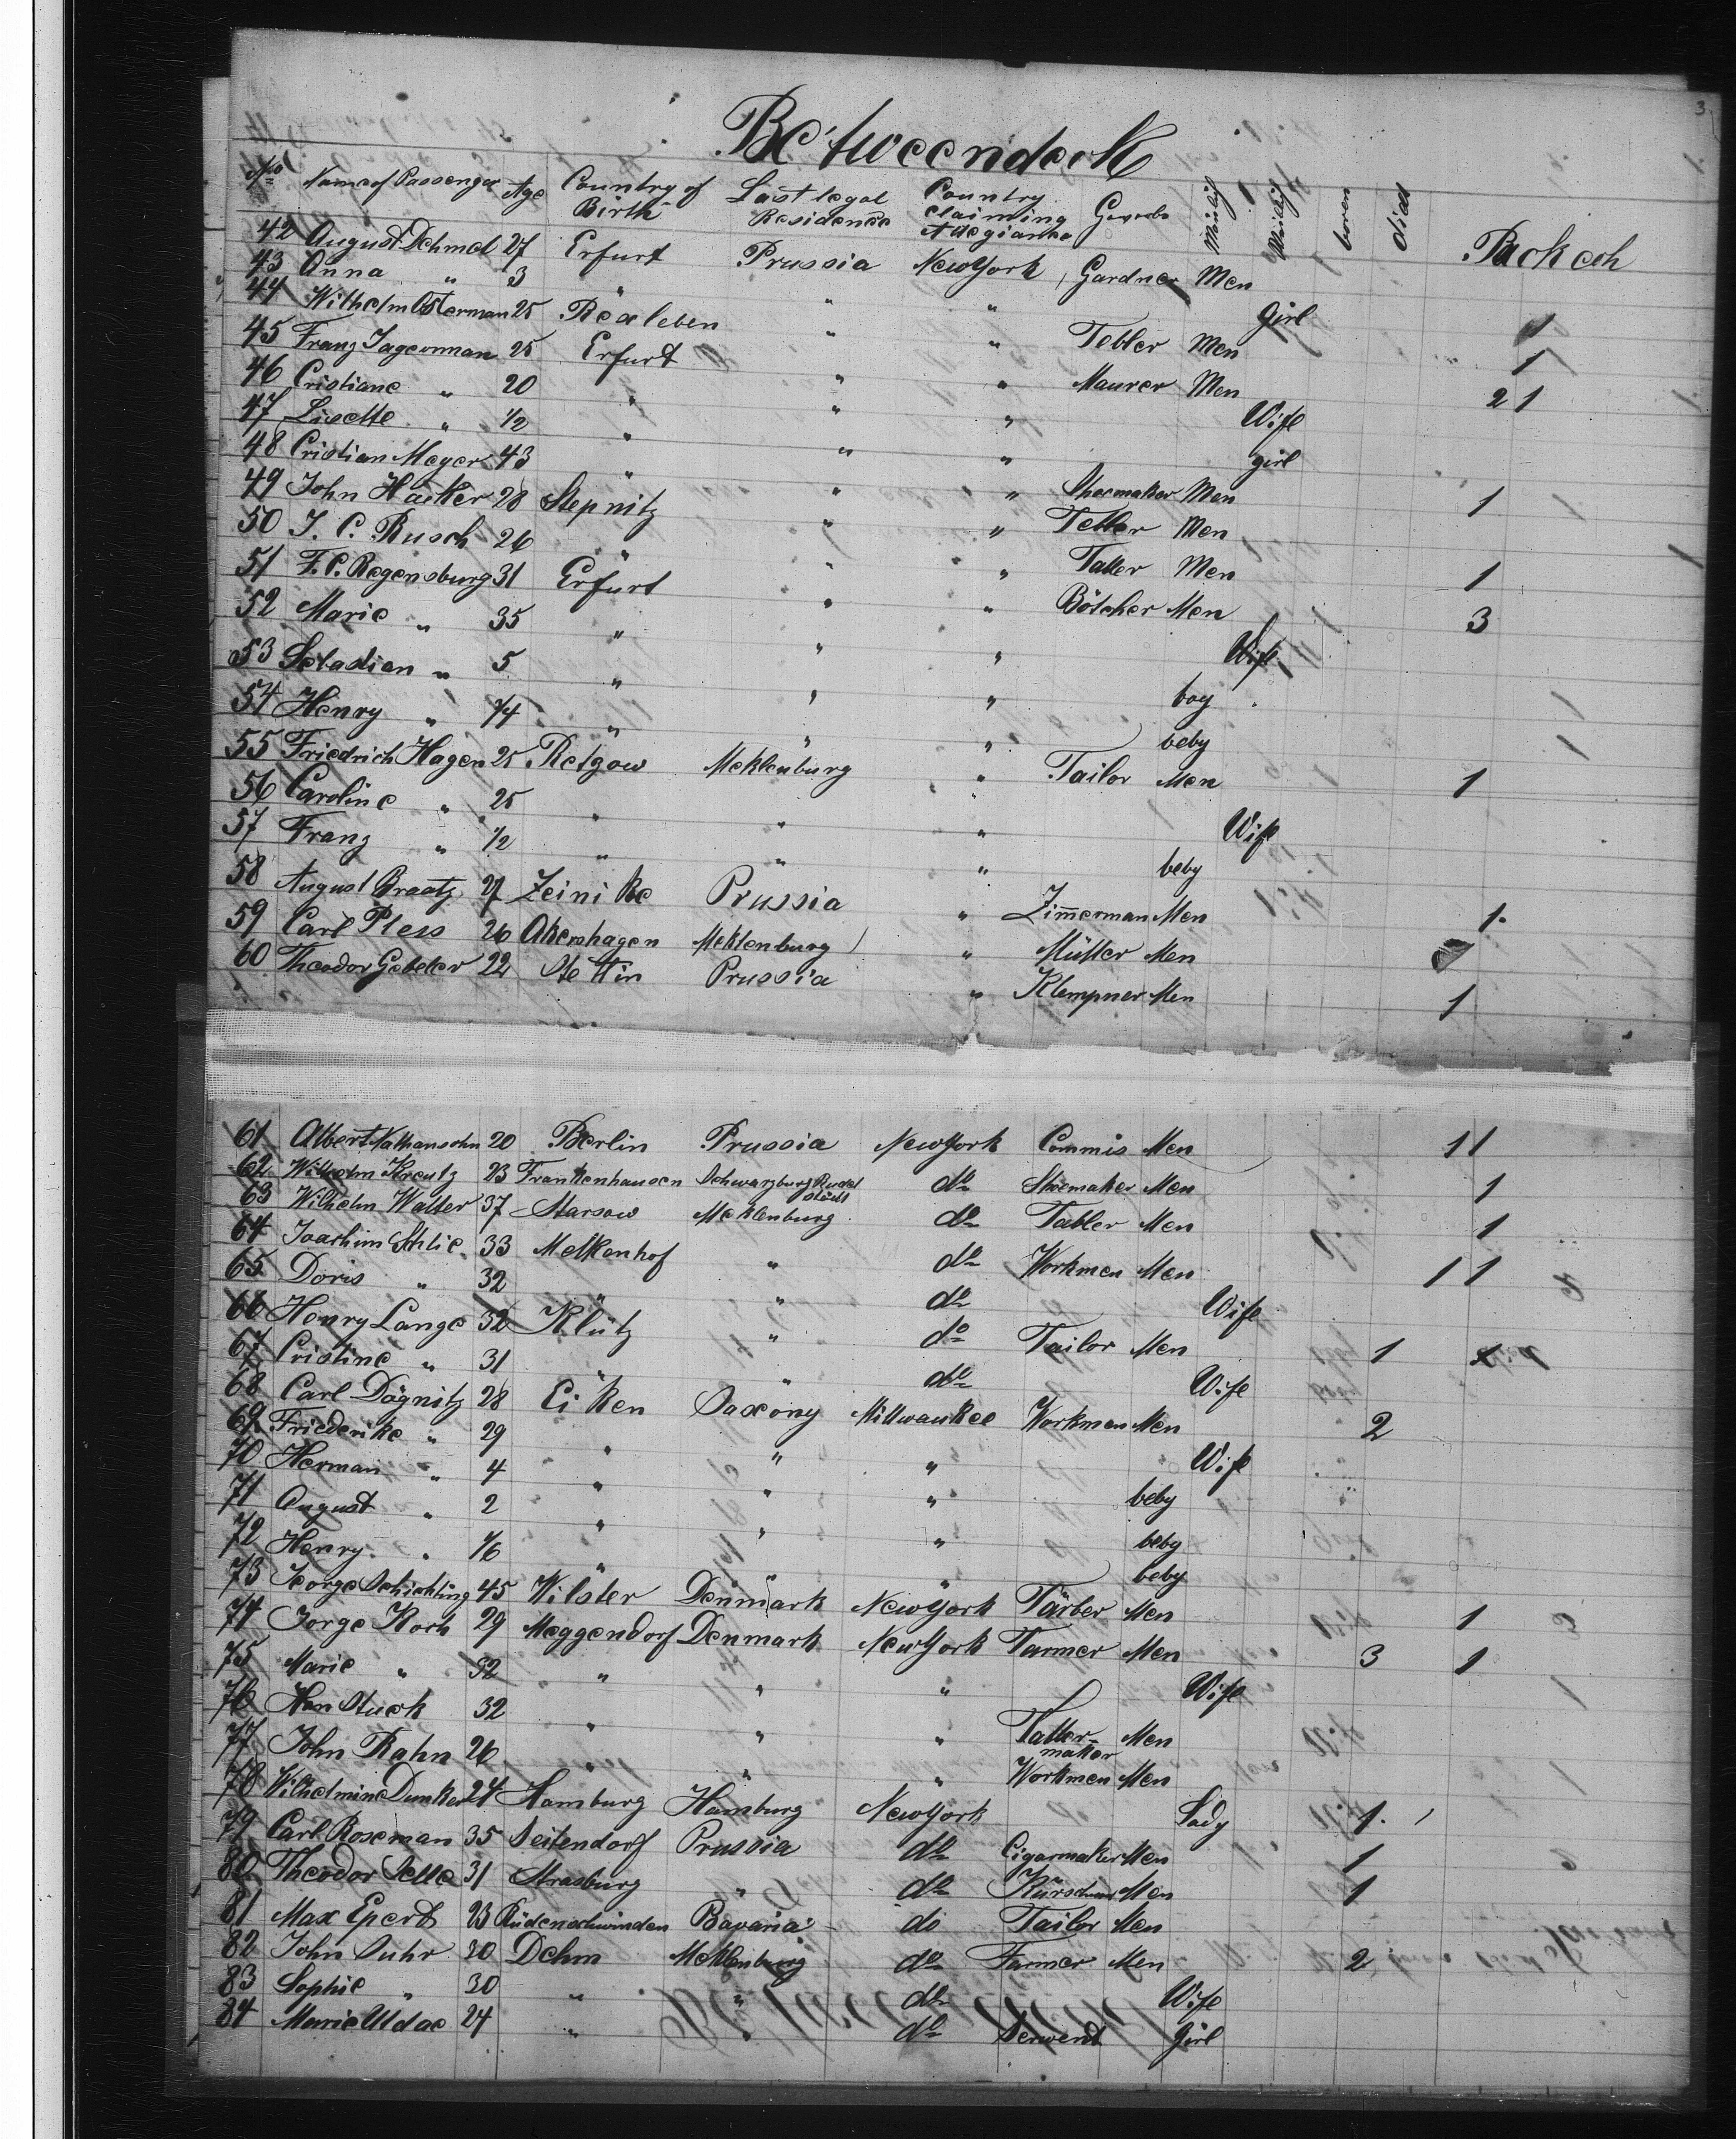 Betweendeck
No Name of Passenger Age Country of Birth Last legal Residence Country claiming Allegiance boren died Packech
42 August Dehmel 27 Erfurt Prussia New York Gardner Men
43 Anna " 3 " " " Girl 1
44 Wilhelm Osterman 25 Roxleben " " Tebler Men 1
45 Franz Jagerman 25 Erfurt " " Maurer Men 2 1
46 Cristiane " 20 " " " Wife
47 Lisette " 1/2 " " " girl
48 Cristian Meyer 43 " " " Shoemaker Men 1
49 John Hacker 28 Stepnitz " " Tebler Men
50 J. C. Rusch 26 " " " Taller Men 1
51 F. C. Regensburg 31 Erfurt " " Bötcher Men 3
52 Marie " 35 " " " Wife
53 Sebastian " 5 " " " boy
54 Henry " 1/4 " " " beby
55 Friedrich Hagen 25 Retgow Meklenburg " Tailor Men 1
56 Caroline " 25 " " " Wife
57 Franz " 1/2 " " " beby
58 August Braatz 27 Zeinike Prussia " Zimmerman Men 1
59 Carl Pless 26 Akershagen Meklenburg " Müller Men
60 Theodor Gebeler 22 Stettin Prussia " Klempner Men 1
61 Albert Nathansohn 20 Berlin Prussia New York Commis Men 1 1
62 Wilhelm Kreutz 23 Frankenhausen Schwarzburg Rudolstadt do Shoemaker Men 1
63 Wilhelm Walter 37 Starsow Meklenburg do Tabler Men 1
64 Joachim Schlie 33 Melkenhof " do Workmen Men 1 1
65 Doris " 32 " " do Wife
66 Henry Lange 32 Klütz " do Tailor Men 1
67 Cristine " 31 " " do Wife
68 Carl Dögnitz 28 Eiken Saxony Millwaukee Workmen Men 2
69 Friederike " 29 " " " Wife
70 Herman " 4 " " " beby
71 August " 2 " " " beby
72 Henry " 1/6 " " " beby
73 Jeorge Schichting 45 Wilster Denmark New York Färber Men 1
74 Jorge Koch 29 Meggendorf Denmark New York Farmer Men 3 1
75 Marie " 32 " " " Wife
76 Han Stuck 32 " " " Men
77 John Rahn 26 " " " Workmen Men
78 Wilhelmine Dunker 24 Hamburg Hamburg New York Lady 1
79 Carl Roseman 35 Seitendorf Prussia do Cigarmaker Men 1
80 Theodor Selle 31 Strasburg " do Kürschner Men 1
81 Max Epert 23 Rüdenschwinden Bavaria do Tailor Men
82 John Suhr 30 Dehm Meklenburg do Farmer Men 2
83 Sophie " 30 " " do Wife
84 Marie Uldae 24 " " do Servend Girl